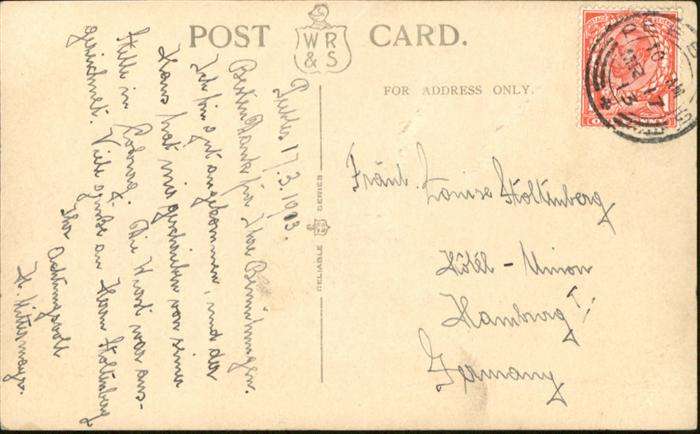 POST CARD.
WR
& S
FOR ADDRESS ONLY.
RELIABLE SERIES
17.3.1913.
Besten Dank für Ihre Bemühungen.
Ich bin gut angekommen, und der
Hans hat mir geschrieben von seiner
Stelle in Coburg. Die Wurst war aus-
gezeichnet. Viele Grüße an Herrn Stoltenberg
Ihr Achtungsvoll
H.
Fräul. Louise Stoltenberg
Hôtel - Union
Hamburg
Germany